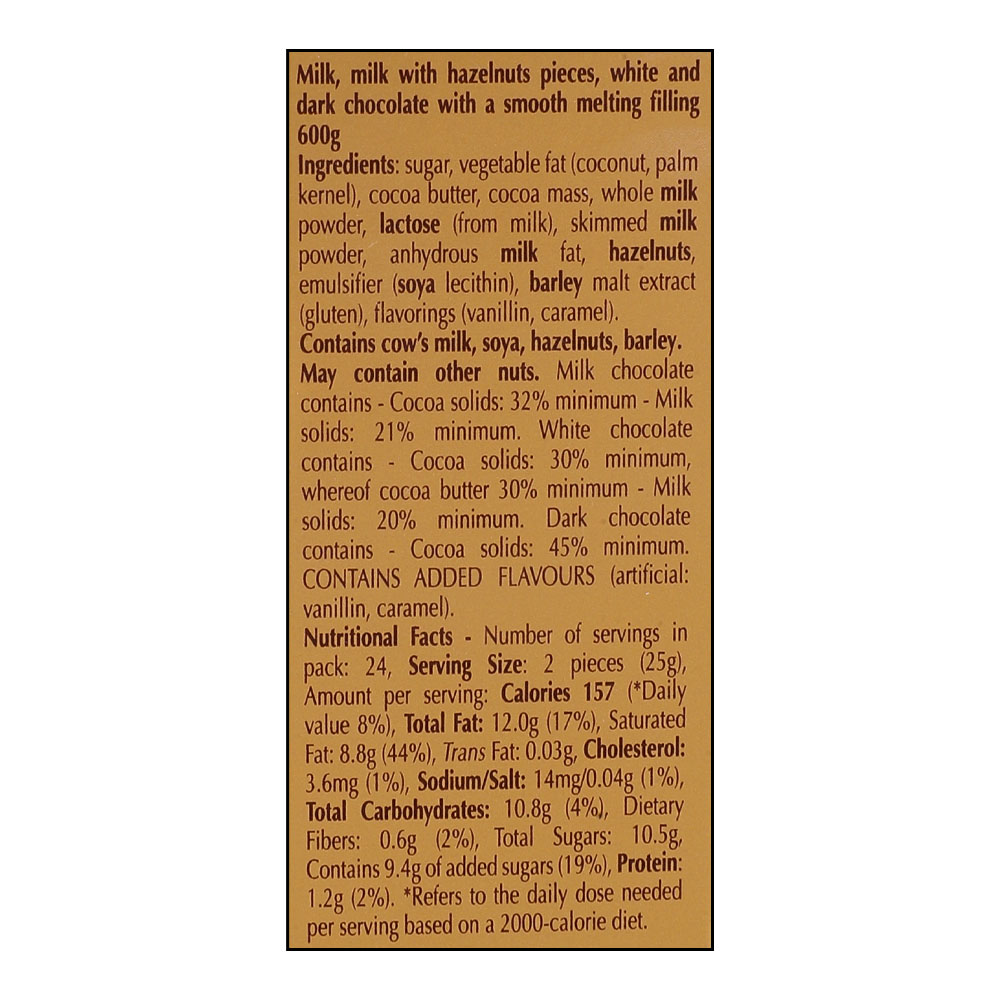 Milk, milk with hazelnuts pieces, white and
dark chocolate with a smooth melting filling
600g
Ingredients: sugar, vegetable fat (coconut, palm
kernel), cocoa butter, cocoa mass, whole milk
powder, lactose (from milk), skimmed milk
powder, anhydrous milk fat, hazelnuts,
emulsifier (soya lecithin), barley malt extract
(gluten), flavorings (vanillin, caramel).
Contains cow's milk, soya, hazelnuts, barley.
May contain other nuts. Milk chocolate
contains - Cocoa solids: 32% minimum - Milk
solids: 21% minimum. White chocolate
contains - Cocoa solids: 30% minimum,
whereof cocoa butter 30% minimum - Milk
solids: 20% minimum. Dark chocolate
contains - Cocoa solids: 45% minimum.
CONTAINS ADDED FLAVOURS (artificial:
vanillin, caramel).
Nutritional Facts - Number of servings in
pack: 24, Serving Size: 2 pieces (25g),
Amount per serving: Calories 157 (*Daily
value 8%), Total Fat: 12.0g (17%), Saturated
Fat: 8.8g (44%), Trans Fat: 0.03g, Cholesterol:
3.6mg (1%), Sodium/Salt: 14mg/0.04g (1%),
Total Carbohydrates: 10.8g (4%), Dietary
Fibers: 0.6g (2%), Total Sugars: 10.5g,
Contains 9.4g of added sugars (19%), Protein:
1.2g (2%). *Refers to the daily dose needed
per serving based on a 2000-calorie diet.